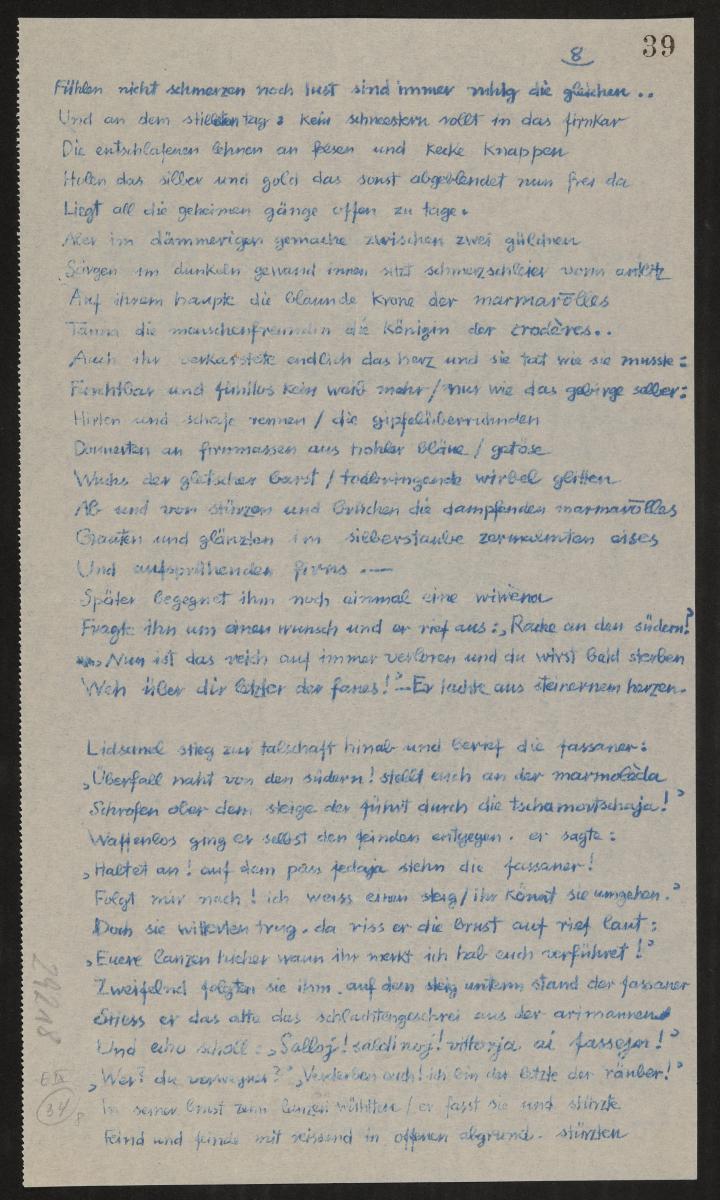 8
39
Fühlen nicht schmerzen noch lust sind immer ruhig die gleichen ..
Und an dem stillsten tag: kein schneestern rollt in das firnkar
Die entschlafenen lehnen an felsen und kecke knappen
Holen das silber und gold das sonst abgeblendet nun frei da
Liegt all die geheimen gänge offen zu tage.
Aber im dämmerigen gemache zwischen zwei güldnen
Särgen im dunkeln gewand innen sitzt schmerzschleier vorm antlitz
Auf ihrem haupte die blaunde krone der marmarōlles
Tanna die menschenfreundin die königin der crodères..
Auch ihr verkarstete endlich das herz und sie tat wie sie musste:
Furchtbar und fühllos kein weib mehr / nur wie das gebirge selber:
Hirten und schafe rennen / die gipfelüberruhnden
Donnerten an firnmassen aus hohler bläue / getöse
Wuchs der gletscher barst / todbringende wirbel glitten
Ab und von stürzen und brüchen die dampfenden marmarōlles
Grauten und glänzten im sieberstaube zermalmten eises
Und aufsprühenden firns .—
Später begegnet ihm noch einmal eine wiwèna
Fragte ihn um einen wunsch und er rief aus: „Rache an den südern!"
„Nun ist das reich auf immer verloren und du wirst bald sterben
Weh über dir letzter der fanes!" — Er lachte aus steinernem herzen.
Lidsanel stieg zur talschaft hinab und berief die fassaner:
„Überfall naht von den südern! stellt euch an der marmolèda
Schrofen ober dem steige der führt durch die tschamortschaja!"
Waffenlos ging er selbst den feinden entgegen. er sagte:
„Haltet an! auf dem pass fedaja stehn die fassaner!
Folgt mir nach! ich weiss einen steig / ihr könnt sie umgehen."
Doch sie witterten trug. da riss er die brust auf rief laut:
„Euere lanzen hieher wann ihr merkt ich hab euch verführet!"
Zweifelnd folgten sie ihm. auf dem steig unterm stand der fassaner
Stiess er das alte das schlachtengeschrei aus der arimannen
Und echo scholl: „Salloj! saldi noj! vittorja ai fassejn!"
„Wer? du verwegner?" „Verderben euch! ich bin der letzte der räuber!"
In seiner brust zehn lanzen wühlten / er fasst sie und stürzte
Feind und feinde mit reissend in offenen abgrund. stürzten
29218
E IX
34
8